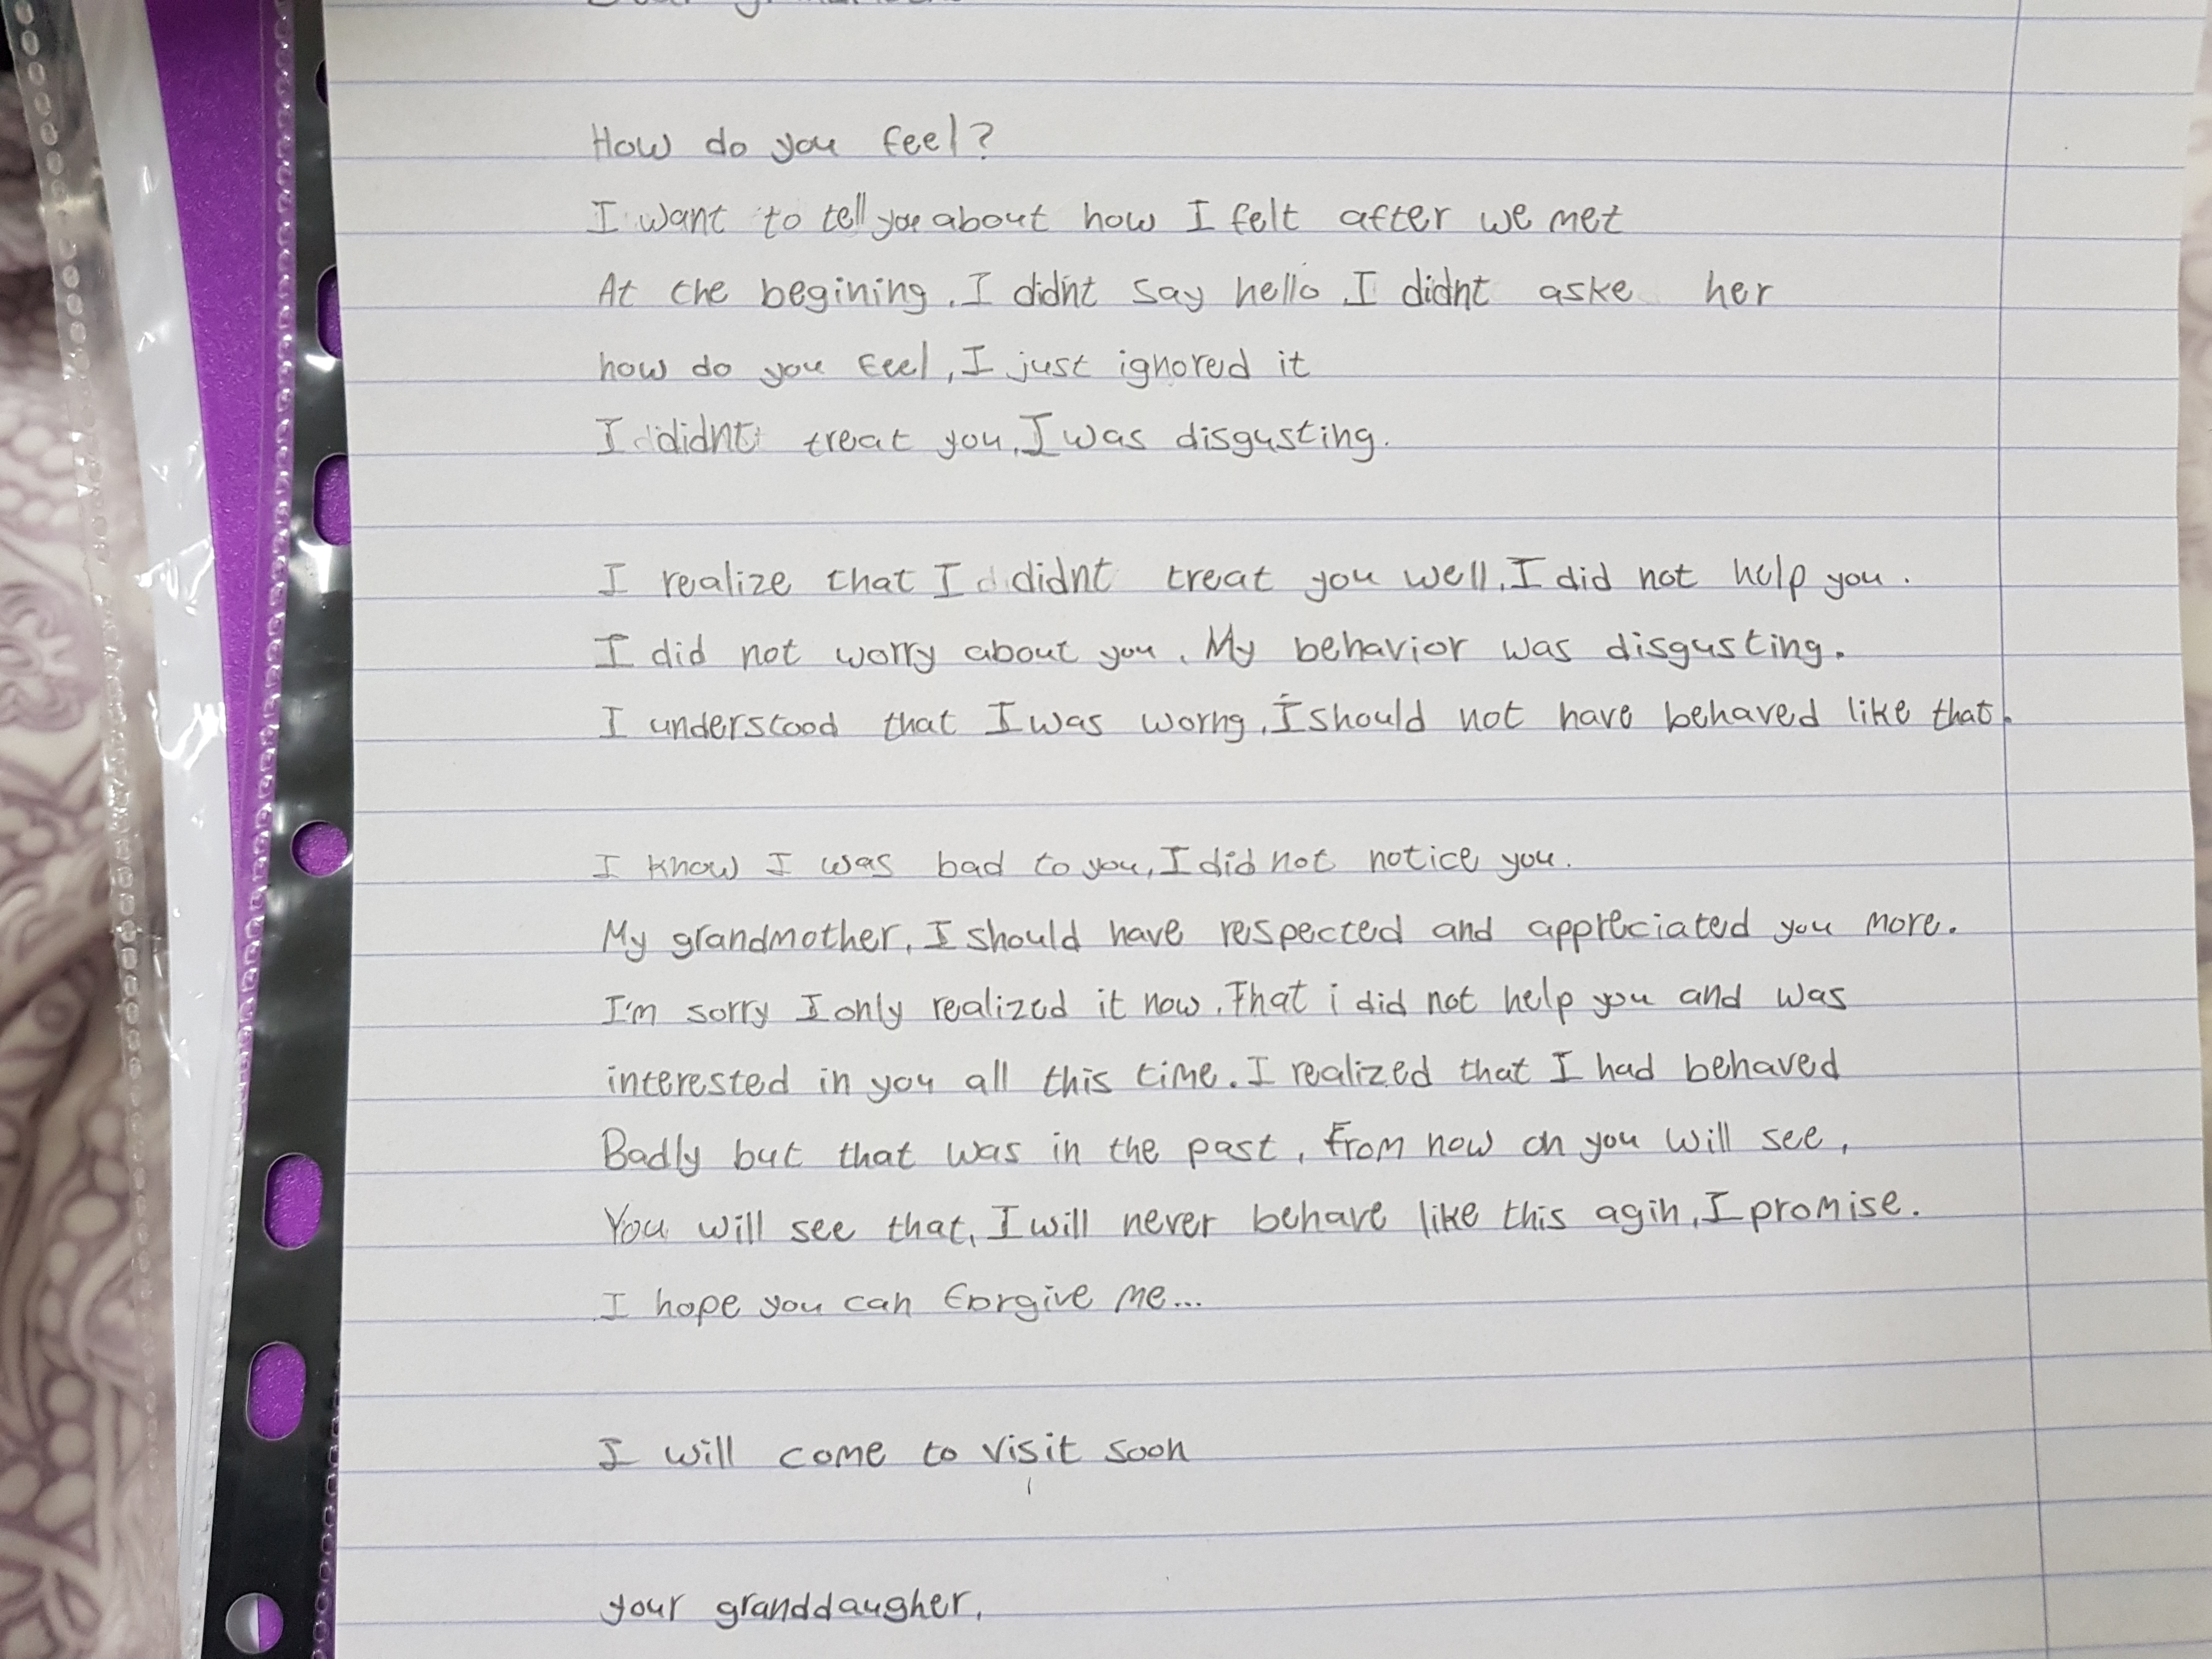 How do you feel?
I want to tell you about how I felt after we met
At the begining, I didnt say hello, I didnt aske her
how do you feel, I just ignored it
I didnt treat you, I was disgusting.
I realize that I didnt treat you well, I did not help you.
I did not worry about you. My behavior was disgusting.
I understood that I was worng, I should not have behaved like that.
I know I was bad to you, I did not notice you.
My grandmother, I should have respected and appreciated you more.
I'm sorry I only realized it now. That i did not help you and was
interested in you all this time. I realized that I had behaved
Badly but that was in the past, From now on you will see,
You will see that, I will never behave like this agin, I promise.
I hope you can forgive me...
I will come to visit soon
your granddaugher,